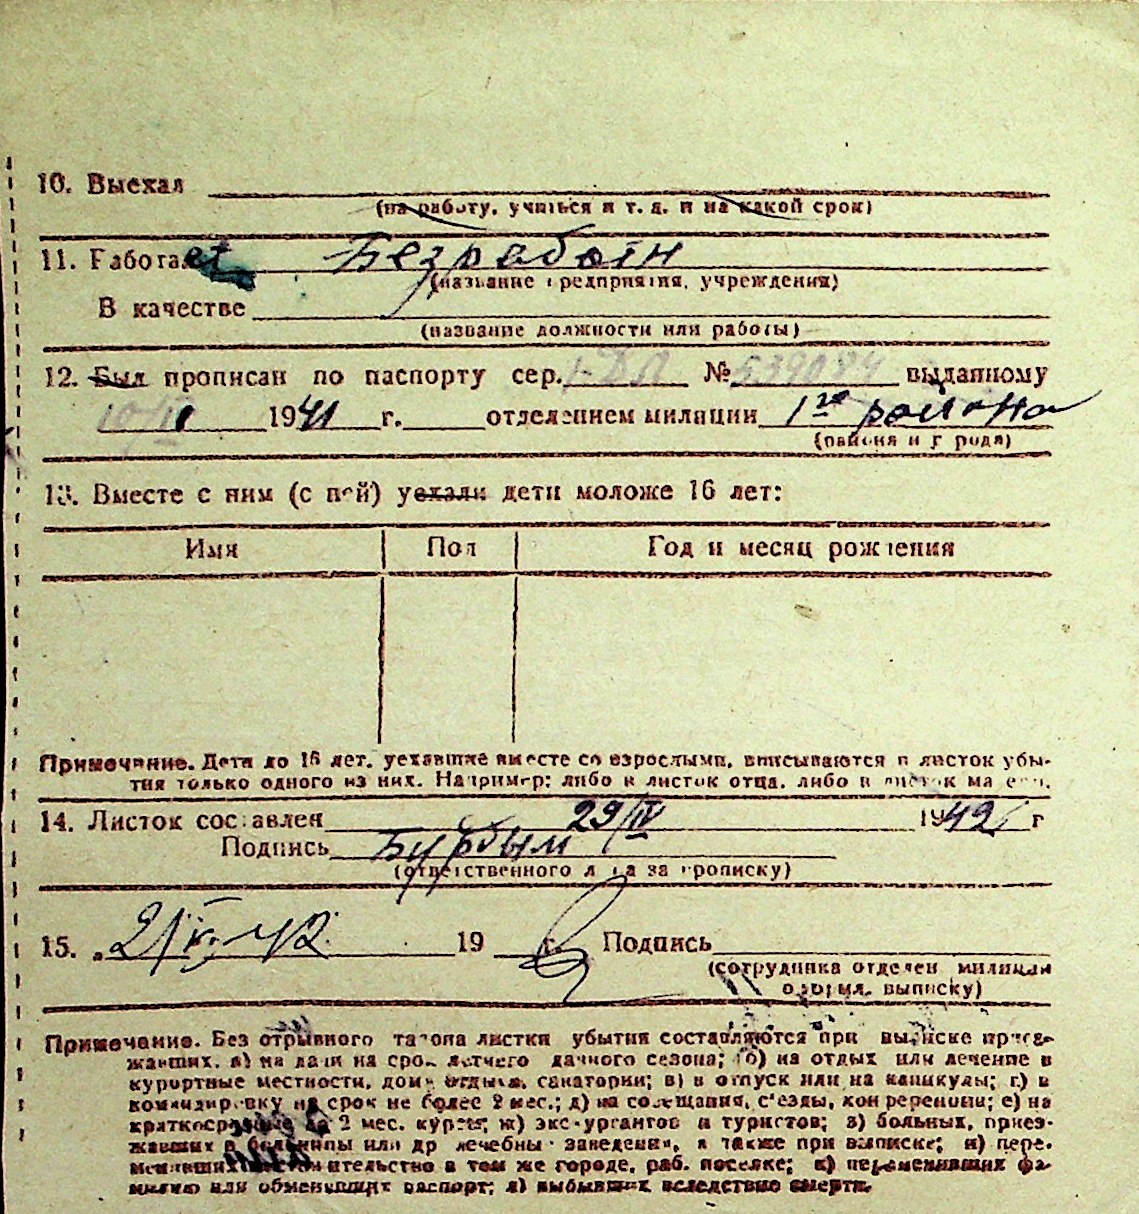 10. Выехал
(на работу, учиться и т. д. и на какой срок)
11. Работает Безработн
(название предприятия, учреждения)
В качестве
(название должности или работы)
12. Был прописан по паспорту сер. № 539084 выданному
1941 г. отделением милиции 1го района
(района и города)
13. Вместе с ним (с ней) уехали дети моложе 16 лет:
Имя Пол Год и месяц рождения
Примечание. Дети до 16 лет, уехавшие вместе со взрослыми, вписываются в листок убы-
тия только одного из них. Например: либо в листок отца, либо в листок матери.
14. Листок составлен 29/IV 1942 г
Подпись
(ответственного лица за прописку)
15. 19 г. Подпись
(сотрудника отделен. милиции
оформл. выписку)
Примечание. Без отрывного талона листки убытия составляются при выписке приез-
жавших: а) на дачи на срок летнего дачного сезона; б) на отдых или лечение в
курортные местности, дома отдыха, санатории; в) в отпуск или на каникулы; г) в
командировку на срок не более 2 мес.; д) на совещания, съезды, конференции; е) на
краткосрочные до 2 мес. курсы; ж) экскурсантов и туристов; з) больных, приез-
жавших в больницы или др лечебные заведения, а также при выписке; и) пере-
менивших местожительство в том же городе, раб. поселке; к) переменивших фа-
милию или обменивших паспорт; л) выбывших вследствие смерти.